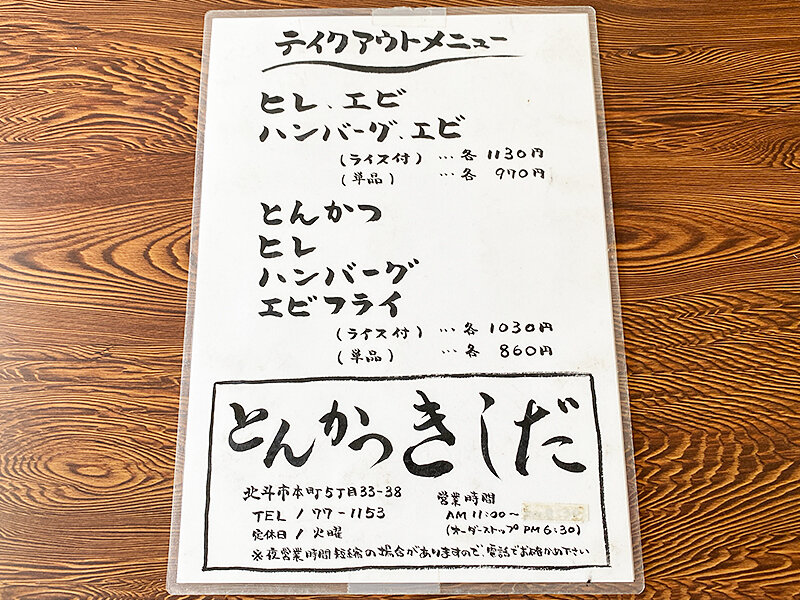 テイクアウトメニュー
ヒレ、エビ
ハンバーグ、エビ
(ライス付) … 各 1130円
(単品) … 各 970円
とんかつ
ヒレ
ハンバーグ
エビフライ
(ライス付) … 各 1030円
(単品) … 各 860円
とんかつきしだ
北斗市本町5丁目33-38
TEL / 77-1153
定休日 / 火曜
営業時間
AM 11:00〜
(オーダーストップ PM 6:30)
※夜営業時間短縮の場合がありますので、電話でお確かめ下さい